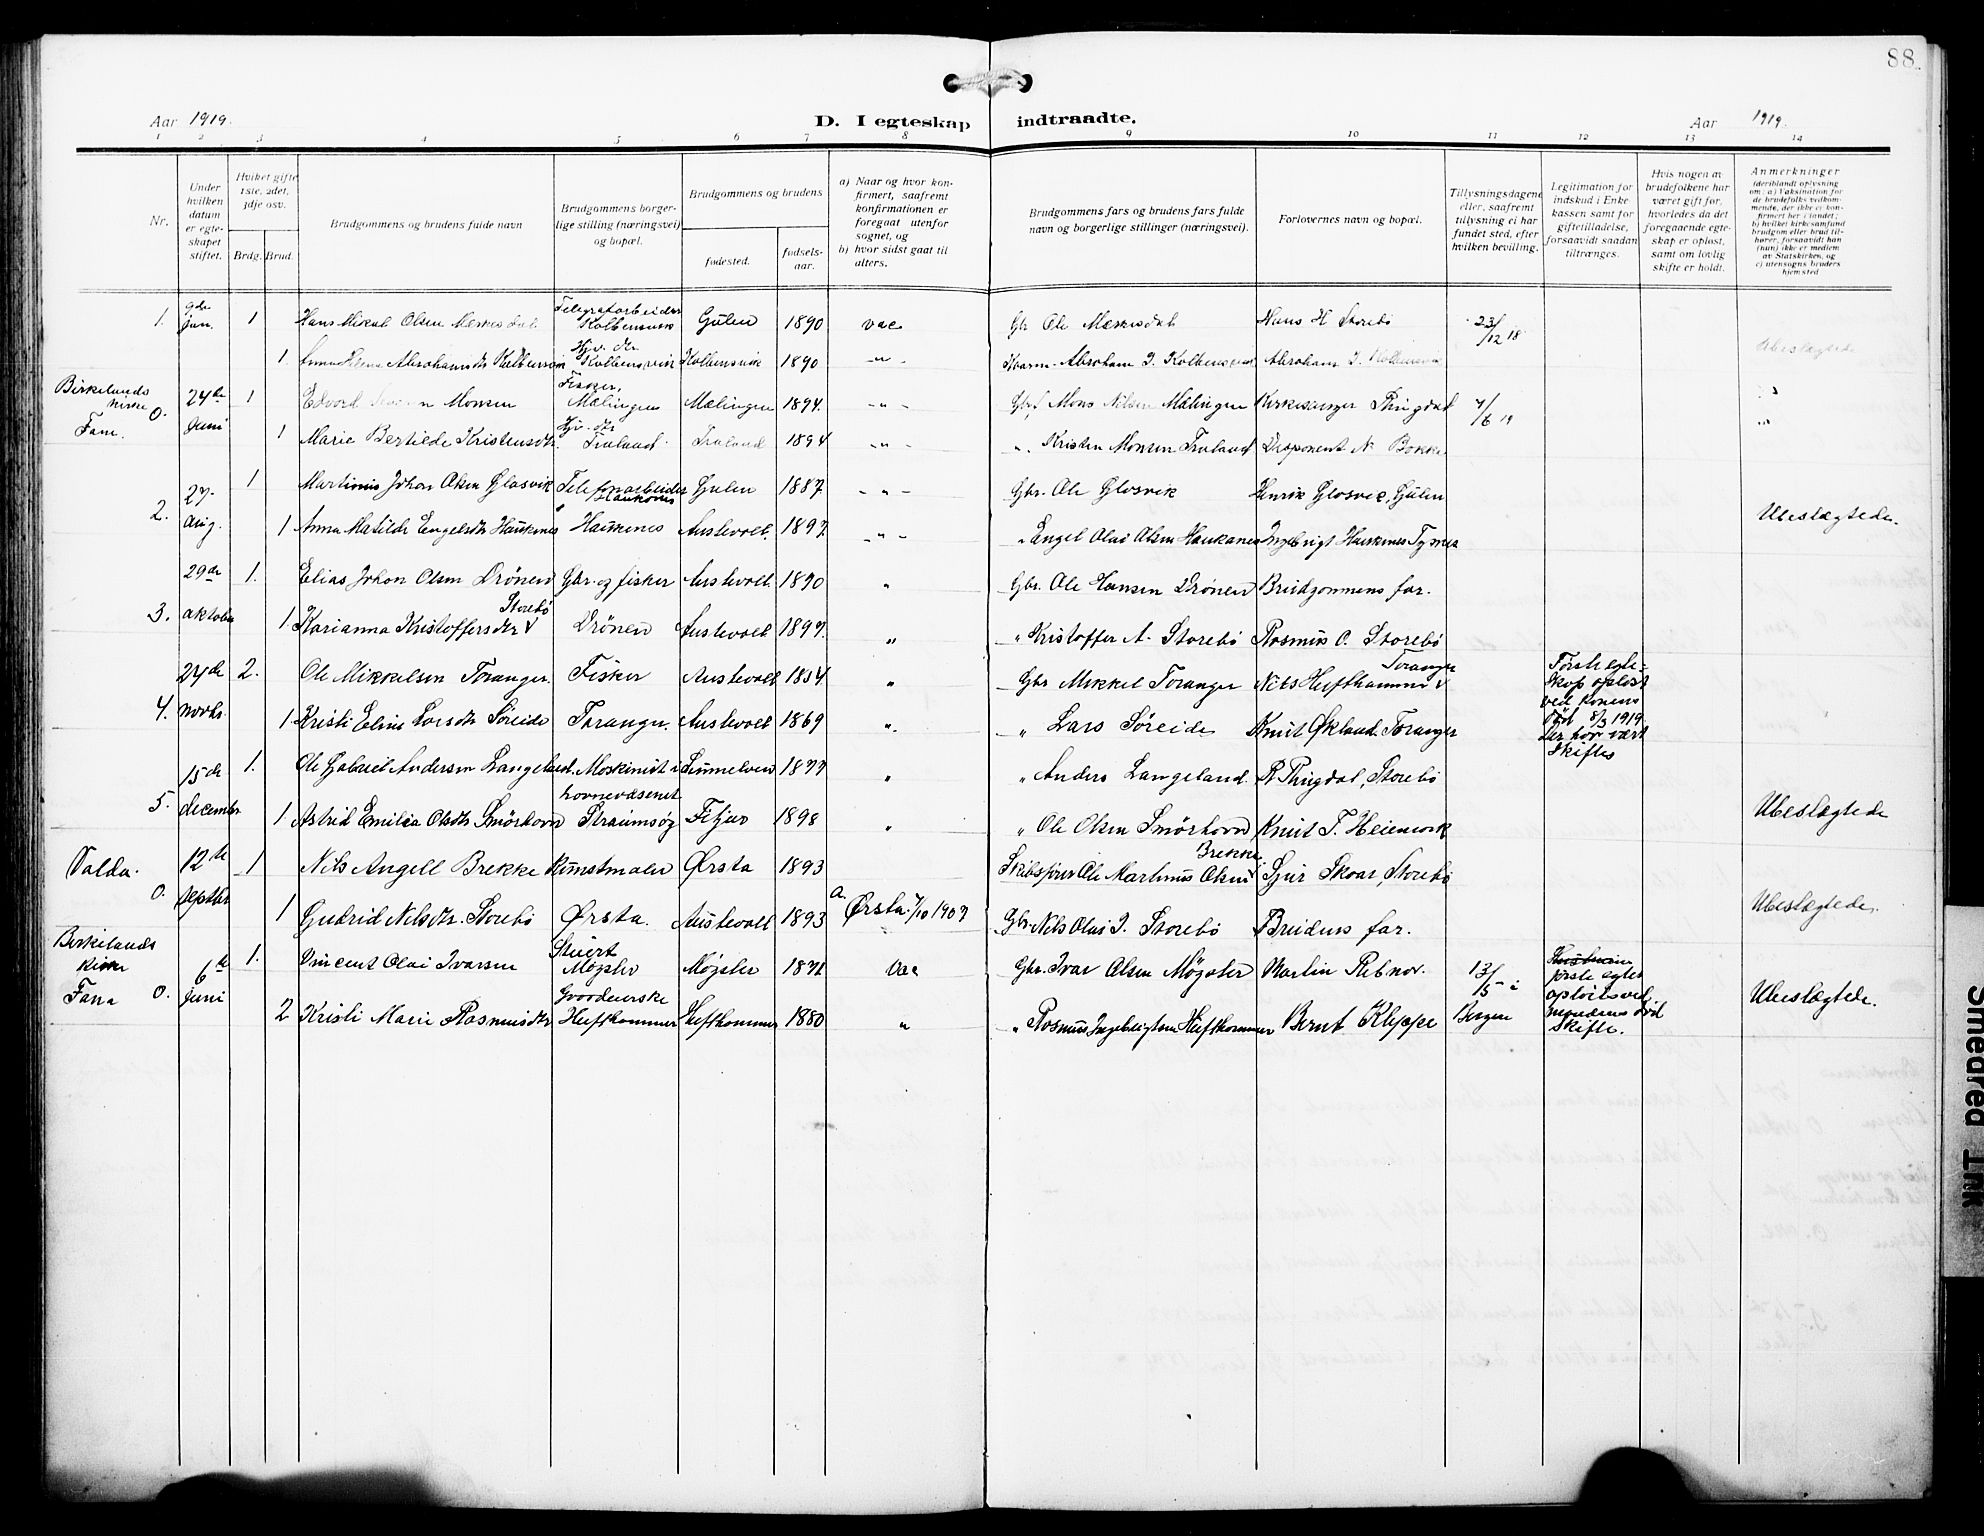 88.
Aar 1919.
D. I egteskap indtraadte.
Aar 1919.
1 2 3 4 5 6 7 8 9 10 11 12 13 14
Nr.
Under hvilken datum er egteskapet stiftet.
Hvilket gifte 1ste, 2det, 3dje osv.
Brdg. Brud.
Brudgommens og brudens fulde navn
Brudgommens borgerlige stilling (næringsvei) og bopæl.
Brudgommens og brudens
fødested.
fødselsaar.
a) Naar og hvor konfirmert, saafremt konfirmationen er foregaat utenfor sognet, og
b) hvor sidst gaat til alters.
Brudgommens fars og brudens fars fulde navn og borgerlige stillinger (næringsvei).
Forlovernes navn og bopæl.
Tillysningsdagene eller, saafremt tillysning ei har fundet sted, efter hvilken bevilling.
Legitimation for indskud i Enkekassen samt for giftetilladelse, forsaavidt saadan tiltrænges.
Hvis nogen av brudefolkene har været gift før, hvorledes da det foregaaende egteskap er opløst, samt om lovlig skifte er holdt.
Anmerkninger (deriblandt oplysning om: a) Vaksination for de brudefolks vedkommende, der ikke er konfirmert her i landet; b) hvilket kirkesamfund brudgom eller brud tilhører, forsaavidt han (hun) ikke er medlem av Statskirken, og c) utensogns bruders hjemsted
1. 9de Jan. 1 Hans Mikal Olsen Telegrafarbeider Kolbensvik Gulen 1890 vac Gbr Ole Hans H Storebø 23/12 18
1. Helene Abrahamsdtr Hjv. dtr Kolbensvik Kolbensvik 1890 -"- Abraham I. Abraham I. Ubeslægtede
Birkelands kirke Fane. 0. 24de Juni 1 Edvard Monsen Fisker, Mælingen Mælingen 1894. -"- Gbr Mons Nilsen Mælingen Kirkesanger Thingdal 7/6 19
1 Marie Bertilde Kristensdtr. Hjv. dtr 1894 -"- Kristen Monsen Disponent N
2. 27. Aug. 1 Martinus Johan Olsen Glosvik Telefonarbeider Haukenes Gulen 1887. -"- Gbr. Ole Glosvik Henrik Glosvik, Gulen
1 Anna Matilde Engelsdtr Haukenes Haukenes Austevoll. 1897. -"- " Engel Olai Olsen Haukanes Ingebrigt Haukenes Tysnes Ubeslægtede.
3. 29de oktober 1. Elias Johan Olsen Drönen Gbr. og fisker Austevoll 1890 " Gbr. Ole Hansen Drönen Brudgommens far.
1. Karianna Kristoffersdtr Storebö Drönen Austevoll 1897. " " Kristoffer A. Storebö Rasmus O. Storebö
4. 24de novbr. 2. Ole Mikkelsen Töranger. Fisker Austevoll 1854. " Gbr Mikkel Töranger Nils Hufthammer Töranger Første egteskap opløst ved konens död 8/3 1919. Der har vært skiftes
1. Kristi Eline Larsdtr Søreide Toranger. Austevoll 1869 " " Lars Søreide Knut Økland. Toranger
5. 15de december 1. Ole Gabriel Andersen Langeland. Maskinist i havnevæsenet 1877 " " Anders Langeland. R Thingdal, Storebö
1 Astrid Emilia Olsdtr Smörhavn Straumsøy Fitjar 1898 " " Ole Olsen Smörhavn Knut T. Ubeslægtede
Valda. 0. 12te Septbr 1 Nils Angell Brekke Kunstmaler Ørsta 1893 Skibsfører Ole Martinus Olsen Brekke Sjur Skaar, Storebö
1 Gudrid Nilsdtr. Storebö Ørsta. Austevoll 1893 a. Ørsta 7/10 1907 Gbr. Nils Olai I. Storebö Brudens far. Ubeslægtede.
Birkelands kirke Fana 0. 6te Juni 1. Vincent Olai Ivarsen Stuert Møgster Møgster 1871 Vac Gbr. Ivar Olsen Møgster Martin Rebnor. 13/5 i Bergen første egtesk opløst ved mandens död Skifte.
2 Kristi Marie Rasmusdtr Gaardbrukerske Hufthammer Hufthammer 1880 " " Rasmus Ingebrigtsen Hufthammer Bernt Klippe Ubeslægtede.
Smedred TNK